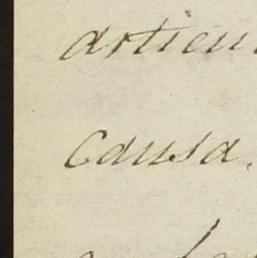 articu
causa.